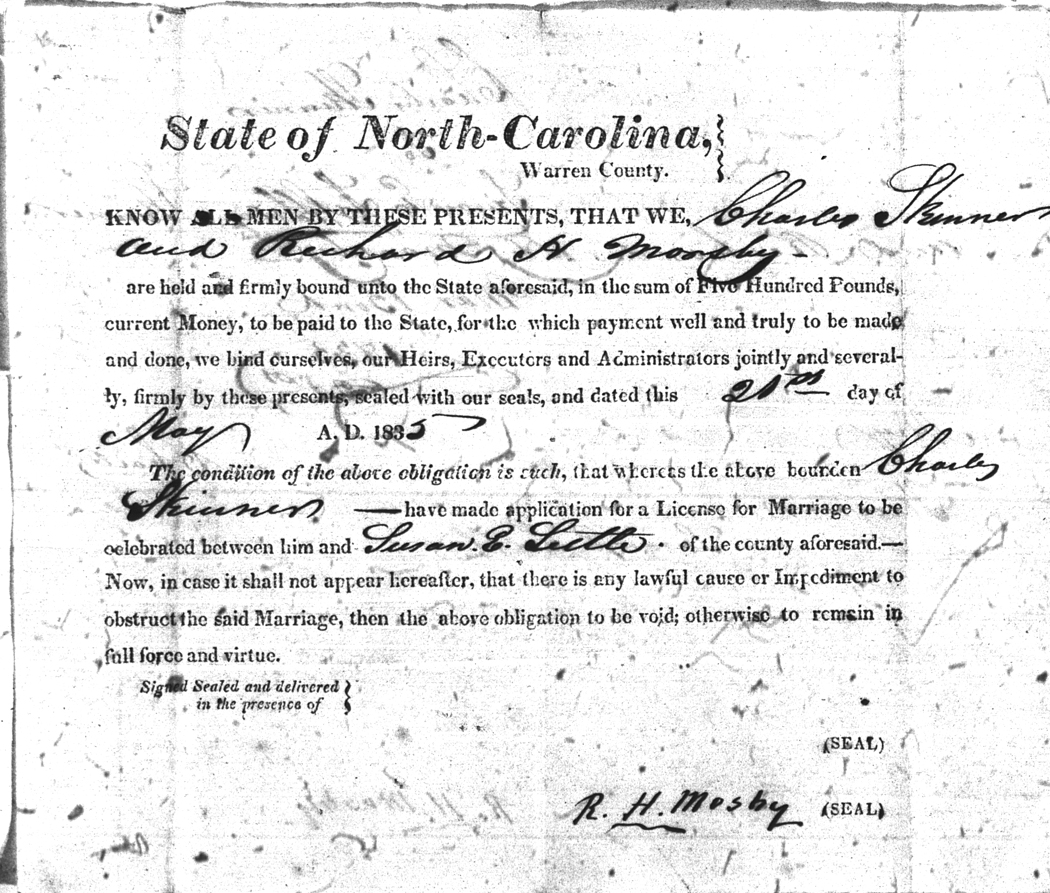 State of North-Carolina,
Warren County.
KNOW ALL MEN BY THESE PRESENTS, THAT WE, Charles Skinner
and Richard H Moosby
are held and firmly bound unto the State aforesaid, in the sum of Five Hundred Pounds,
current Money, to be paid to the State, for the which payment well and truly to be made
and done, we bind ourselves, our Heirs, Executors and Administrators jointly and several-
ly, firmly by these presents, sealed with our seals, and dated this day of
May A. D. 1835
The condition of the above obligation is such, that whereas the above bounden Charles
Skinner — have made application for a License for Marriage to be
celebrated between him and Susan. E. Little. of the county aforesaid.—
Now, in case it shall not appear hereafter, that there is any lawful cause or Impediment to
obstruct the said Marriage, then the above obligation to be void; otherwise to remain in
full force and virtue.
Signed Sealed and delivered
in the presence of
(SEAL)
R. H. Mosby (SEAL)